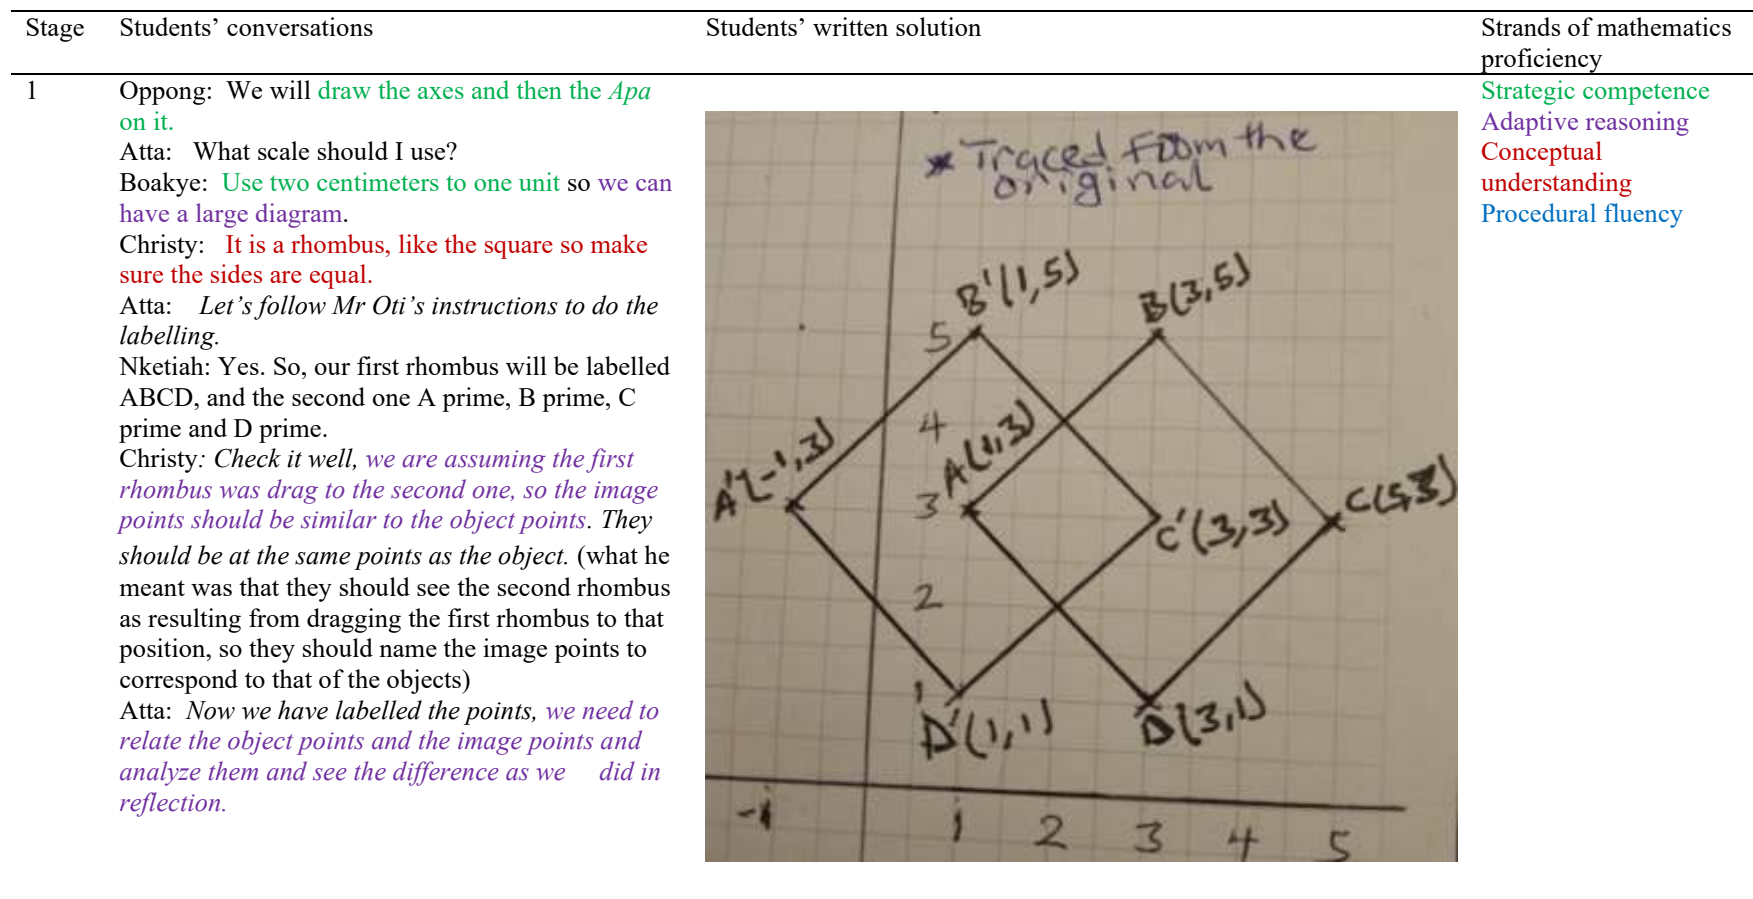 Stage
Students’ conversations
Students’ written solution
Strands of mathematics
proficiency
1
Oppong: We will draw the axes and then the Apa
on it.
Atta: What scale should I use?
Boakye: Use two centimeters to one unit so we can
have a large diagram.
Christy: It is a rhombus, like the square so make
sure the sides are equal.
Atta: Let’s follow Mr Oti’s instructions to do the
labelling.
Nketiah: Yes. So, our first rhombus will be labelled
ABCD, and the second one A prime, B prime, C
prime and D prime.
Christy: Check it well, we are assuming the first
rhombus was drag to the second one, so the image
points should be similar to the object points. They
should be at the same points as the object. (what he
meant was that they should see the second rhombus
as resulting from dragging the first rhombus to that
position, so they should name the image points to
correspond to that of the objects)
Atta: Now we have labelled the points, we need to
relate the object points and the image points and
analyze them and see the difference as we did in
reflection.
* Traced from the
original
B'(1,5)
B(3,5)
5
4
A'(-1,3)
A(1,3)
3
C'(3,3)
C(5,3)
2
1
D'(1,1)
D(3,1)
-1 1 2 3 4 5
Strategic competence
Adaptive reasoning
Conceptual
understanding
Procedural fluency